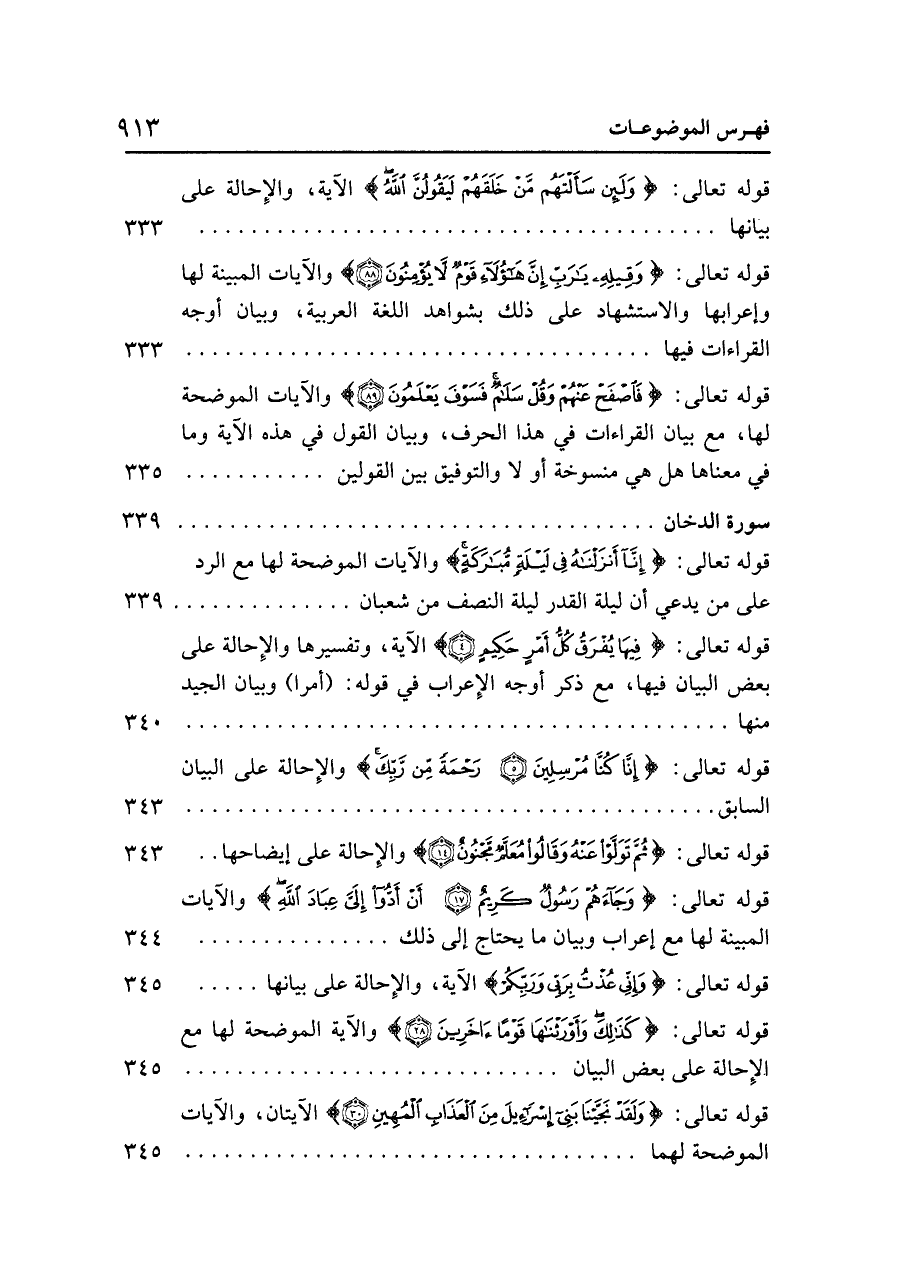 فهـرس الموضوعـات ٩١٣
قوله تعالى: ﴿ وَلَئِن سَأَلْتَهُم مَّنْ خَلَقَهُمْ لَيَقُولُنَّ ٱللَّهُۖ ﴾ الآية، والإحالة على
بيانها ........................................ ٣٣٣
قوله تعالى: ﴿ وَقِيلِهِۦ يَٰرَبِّ إِنَّ هَٰٓؤُلَآءِ قَوْمٌ لَّا يُؤْمِنُونَ ٨٨﴾ والآيات المبينة لها
وإعرابها والاستشهاد على ذلك بشواهد اللغة العربية، وبيان أوجه
القراءات فيها .................................... ٣٣٣
قوله تعالى: ﴿ فَٱصْفَحْ عَنْهُمْ وَقُلْ سَلَٰمٌۚ فَسَوْفَ يَعْلَمُونَ ٨٩﴾ والآيات الموضحة
لها، مع بيان القراءات في هذا الحرف، وبيان القول في هذه الآية وما
في معناها هل هي منسوخة أو لا والتوفيق بين القولين ........... ٣٣٥
سورة الدخان ..................................... ٣٣٩
قوله تعالى: ﴿ إِنَّآ أَنزَلْنَٰهُ فِى لَيْلَةٍ مُّبَٰرَكَةٍۚ﴾ والآيات الموضحة لها مع الرد
على من يدعي أن ليلة القدر ليلة النصف من شعبان .............. ٣٣٩
قوله تعالى: ﴿ فِيهَا يُفْرَقُ كُلُّ أَمْرٍ حَكِيمٍ ٤﴾ الآية، وتفسيرها والإحالة على
بعض البيان فيها، مع ذكر أوجه الإعراب في قوله: (أمرا) وبيان الجيد
منها .......................................... ٣٤٠
قوله تعالى: ﴿ إِنَّا كُنَّا مُرْسِلِينَ ٥ رَحْمَةً مِّن رَّبِّكَۚ ﴾ والإحالة على البيان
السابق......................................... ٣٤٣
قوله تعالى: ﴿ ثُمَّ تَوَلَّوْا۟ عَنْهُ وَقَالُوا۟ مُعَلَّمٌ مَّجْنُونٌ ١٤﴾ والإحالة على إيضاحها.. ٣٤٣
قوله تعالى: ﴿ وَجَآءَهُمْ رَسُولٌ كَرِيمٌ ١٧ أَنْ أَدُّوٓا۟ إِلَىَّ عِبَادَ ٱللَّهِۖ ﴾ والآيات
المبينة لها مع إعراب وبيان ما يحتاج إلى ذلك ............... ٣٤٤
قوله تعالى: ﴿ وَإِنِّى عُذْتُ بِرَبِّى وَرَبِّكُمْ﴾ الآية، والإحالة على بيانها ..... ٣٤٥
قوله تعالى: ﴿ كَذَٰلِكَۖ وَأَوْرَثْنَٰهَا قَوْمًا ءَاخَرِينَ ٢٨﴾ والآية الموضحة لها مع
الإحالة على بعض البيان ............................. ٣٤٥
قوله تعالى: ﴿ وَلَقَدْ نَجَّيْنَا بَنِىٓ إِسْرَٰٓءِيلَ مِنَ ٱلْعَذَابِ ٱلْمُهِينِ ٣٠﴾ الآيتان، والآيات
الموضحة لهما ................................... ٣٤٥